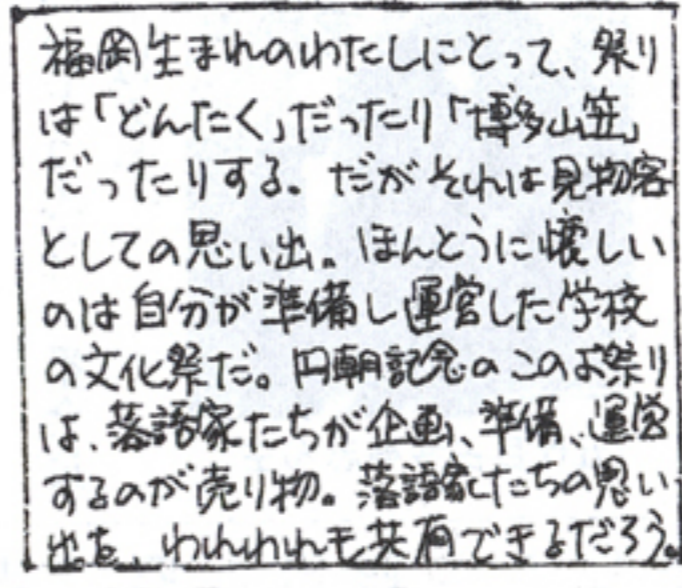 福岡生まれのわたしにとって、祭り
は「どんたく」だったり「博多山笠」
だったりする。だがそれは見物客
としての思い出。ほんとうに懐しい
のは自分が準備し運営した学校
の文化祭だ。円朝記念のこのお祭り
は、落語家たちが企画、準備、運営
するのが売り物。落語家たちの思い
出を、われわれも共有できるだろう。